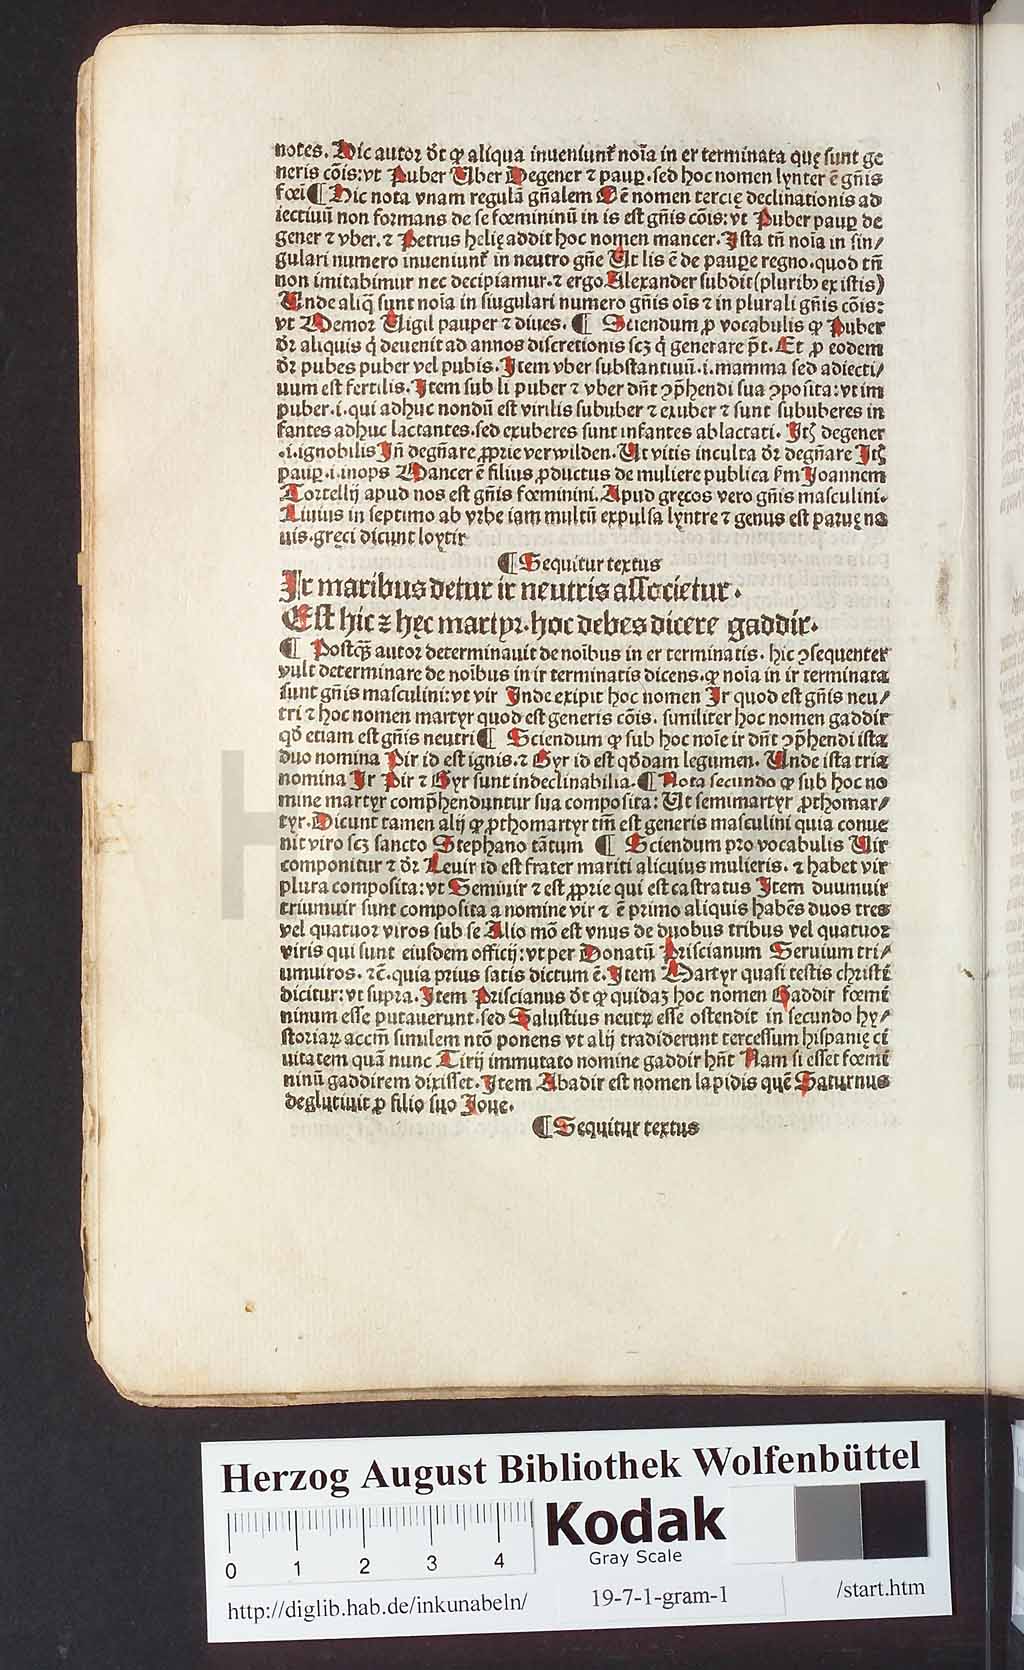 notes. Hic autoꝛ dt̄ ꝙ aliqua inueniunt᷑ noīa in er terminata quę sunt ge
neris cōis: vt Puber Uber Degener ⁊ paup̱. sed hoc nomen lynter ē gn̄is
fœi ¶ Hic nota vnam regulā gn̄alem Oē nomen tercię declinationis ad
iectiuū non formans de se fœmininū in is est gn̄is cōis: vt Puber paup̱ de
gener ⁊ vber. ⁊ Petrus helię addit hoc nomen mancer. Ista tn̄ noīa in sin/
gulari numero inueniunt᷑ in neutro gn̄e Ut lis ē de paup̱e regno. quod tn̄
non imitabimur nec decipiamur. ⁊ ergo Alexander subdit (pluribꝫ ex istis)
Unde aliq̄ sunt noīa in singulari numero gn̄is oīs ⁊ in plurali gn̄is cōis:
vt Memoꝛ Uigil pauper ⁊ diues. ¶ Sciendum ꝓ vocabulis ꝙ Puber
dꝛ̄ aliquis q̇ deuenit ad annos discretionis scꝫ q̇ generare pt̄. Et ꝓ eodem
dꝛ̄ pubes puber vel pubis. Item vber substantiuū .i. mamma sed adiecti/
uum est fertilis. Item sub li puber ⁊ vber dn̄t ꝯp̄hendi sua ꝯposita: vt im
puber .i. qui adhuc nondū est virilis sububer ⁊ exuber ⁊ sunt sububeres in
fantes adhuc lactantes. sed exuberes sunt infantes ablactati. Itꝫ degener
.i. ignobilis Iñ degn̄are ꝓprie verwilden. Ut vitis inculta dꝛ̄ degn̄are Itꝫ
paup̱ .i. inops Mancer ē filius ꝓductus de muliere publica ẜm Joannem
Tortellij apud nos est gn̄is fœminini. Apud gręcos vero gn̄is masculini.
Liuius in septimo ab vꝛbe iam multū expulsa lyntre ⁊ genus est paruę na
uis. gręci dicunt loytir
¶ Sequitur textus
Ir maribus detur ir neutris associetur.
Est hic ⁊ hęc martyꝛ. hoc debes dicere gaddir.
¶ Postꝙ̄ autoꝛ determinauit de noībus in er terminatis. hic ꝯsequenter
vult determinare de noībus in ir terminatis dicens. ꝙ noīa in ir terminata
sunt gn̄is masculini: vt vir Inde exipit hoc nomen Ir quod est gn̄is neu/
tri ⁊ hoc nomen martyr quod est generis cōis. similiter hoc nomen gaddir
qd̄ etiam est gn̄is neutri ¶ Sciendum ꝙ sub hoc noīe ir dn̄t ꝯp̄hendi ista
duo nomina Pir id est ignis. ⁊ Gyr id est qd̄dam legumen. Unde ista tria
nomina Ir Pir ⁊ Gyr sunt indeclinabilia. ¶ Nota secundo ꝙ sub hoc no
mine martyr comp̄henduntur sua composita: Ut semimartyr ꝓthomar/
tyr. Dicunt tamen alij ꝙ ꝓthomartyr tm̄ est generis masculini quia conue
nit viro scꝫ sancto Stephano tātum ¶ Sciendum pꝛo vocabulis Uir
componitur ⁊ dꝛ̄ Leuir id est frater mariti alicuius mulieris. ⁊ habet vir
plura composita: vt Semiuir ⁊ est ꝓprie qui est castratus Item duumuir
triumuir sunt composita a nomine vir ⁊ ē primo aliquis habēs duos tres
vel quatuoꝛ viros sub se Alio mō est vnus de duobus tribus vel quatuoꝛ
viris qui sunt eiusdem officij: vt per Donatū Priscianum Seruium tri/
umuiros. ⁊c̄. quia prius satis dictum ē. Item Martyr quasi testis christi
dicitur: vt supra. Item Priscianus dt̄ ꝙ quidaꝫ hoc nomen Gaddir fœmi
ninum esse putauerunt. sed Salustius neutꝝ esse ostendit in secundo hy/
stoꝛiaꝝ accm̄ similem ntō ponens vt alij tradiderunt tercessum hispanię ci
uitatem quā nunc Tirij immutato nomine gaddir hn̄t Nam si esset fœmi
ninū gaddirem dixisset. Item Abadir est nomen lapidis quē Saturnus
deglutiuit ꝓ filio suo Joue.
¶ Sequitur textus
Herzog August Bibliothek Wolfenbüttel
Kodak
Gray Scale
0 1 2 3 4
http://diglib.hab.de/inkunabeln/ 19-7-1-gram-1 /start.htm